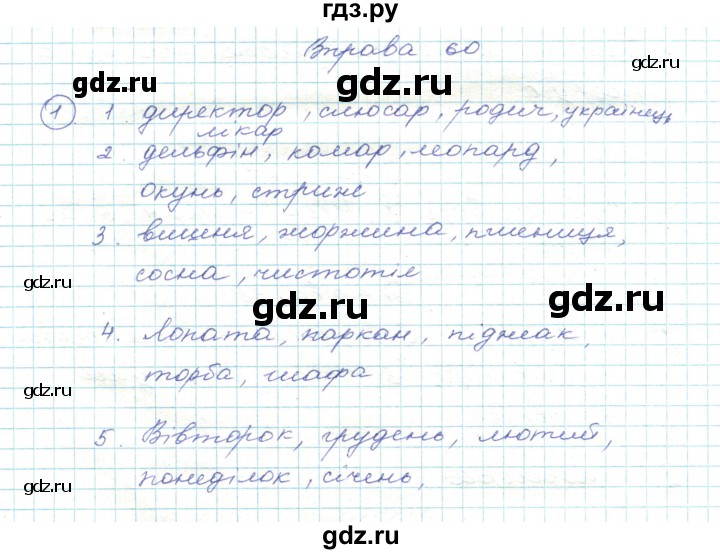 гдз.ру
Вправа 60
gdz.ru gdz.ru
1 1. директор, слюсар, родич, українець,
лікар
gdz.ru gdz.ru
2. дельфін, комар, леопард,
окунь, стриж
3. вишня, жоржина, пшениця,
gdz.ru gdz.ru
сосна, чистотіл
gdz.ru gdz.ru
4. Лопата, паркан, піджак,
торба, шафа
gdz.ru gdz.ru
5. Вівторок, грудень, лютий,
понеділок, січень,
gdz.ru gdz.ru
gdz.ru